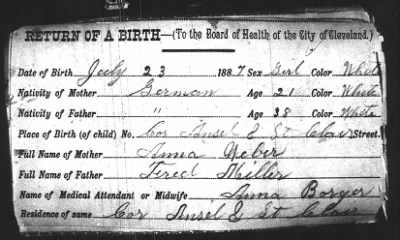 RETURN OF A BIRTH—(To the Board of Health of the City of Cleveland.)
Date of Birth July 23 1887 Sex Girl Color White
Nativity of Mother German Age 21 Color White
Nativity of Father " Age 38 Color White
Place of Birth (of child) No. Cor Ansel & St Clair Street.
Full Name of Mother Anna Weber
Full Name of Father Fred Miller
Name of Medical Attendant or Midwife Anna Borger
Residence of same Cor Ansel & St Clair